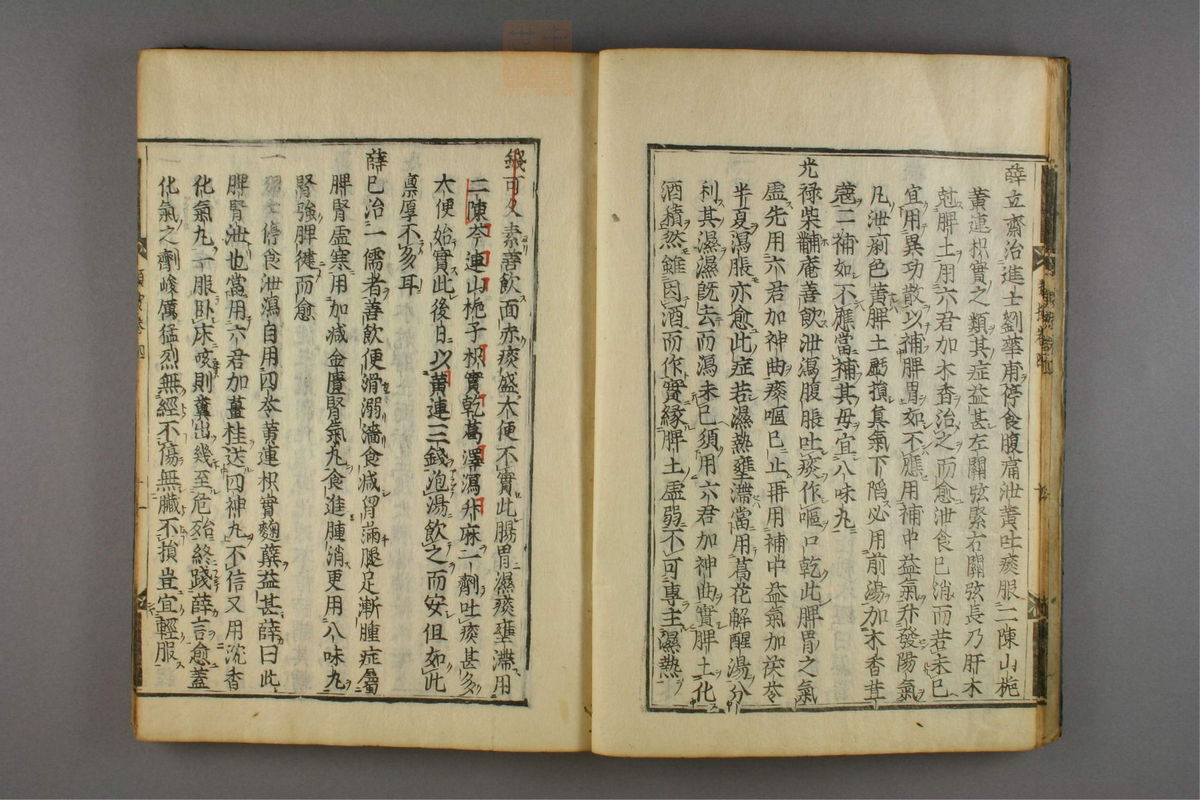 薛立齋治進士劉華甫停食腹痛泄黄吐痰服二陳山梔
黄連枳實之類其症益甚左關弦緊右關弦長乃肝木
尅脾土用六君加木香治之而愈泄食已消而若未已
宜用異功散以補脾胃如不應用補中益氣升發陽氣
凡泄痢色黄脾土虧損真氣下陷必用前湯加木香荳
蔻二補如不應當補其母宜八味丸
光禄柴黼庵善飲泄瀉腹脹吐痰作嘔口乾此脾胃之氣
虚先用六君加神曲痰嘔已止再用補中益氣加茯苓
半夏瀉脹亦愈此症若濕熱壅滯當用葛花解醒湯分
利其濕濕既去而瀉未已須用六君加神曲實脾土化
酒積然雖因酒而作實縁脾土虚弱不可專主濕熱
錢可久素善飲面赤痰盛大便不實此腸胃濕痰壅滯用
二陳芩連山梔子枳實乾葛澤瀉升麻一劑吐痰甚多
大便始實此後日以黄連三錢泡湯飲之而安但如此
禀厚不多耳
薛已治一儒者善飲便滑溺濇食減胃滿腿足漸腫症屬
脾腎虚寒用加減金匱腎氣丸食進腫消更用八味丸
腎強脾健而愈
一 停食泄瀉自用四苓黄連枳實麹蘗益甚薛曰此
脾腎泄也當用六君加薑桂送四神丸不信又用沈香
化氣丸一服卧床咳則糞出幾至危殆終踐薛言愈蓋
化氣之劑峻厲猛烈無經不傷無臟不損豈宜輕服